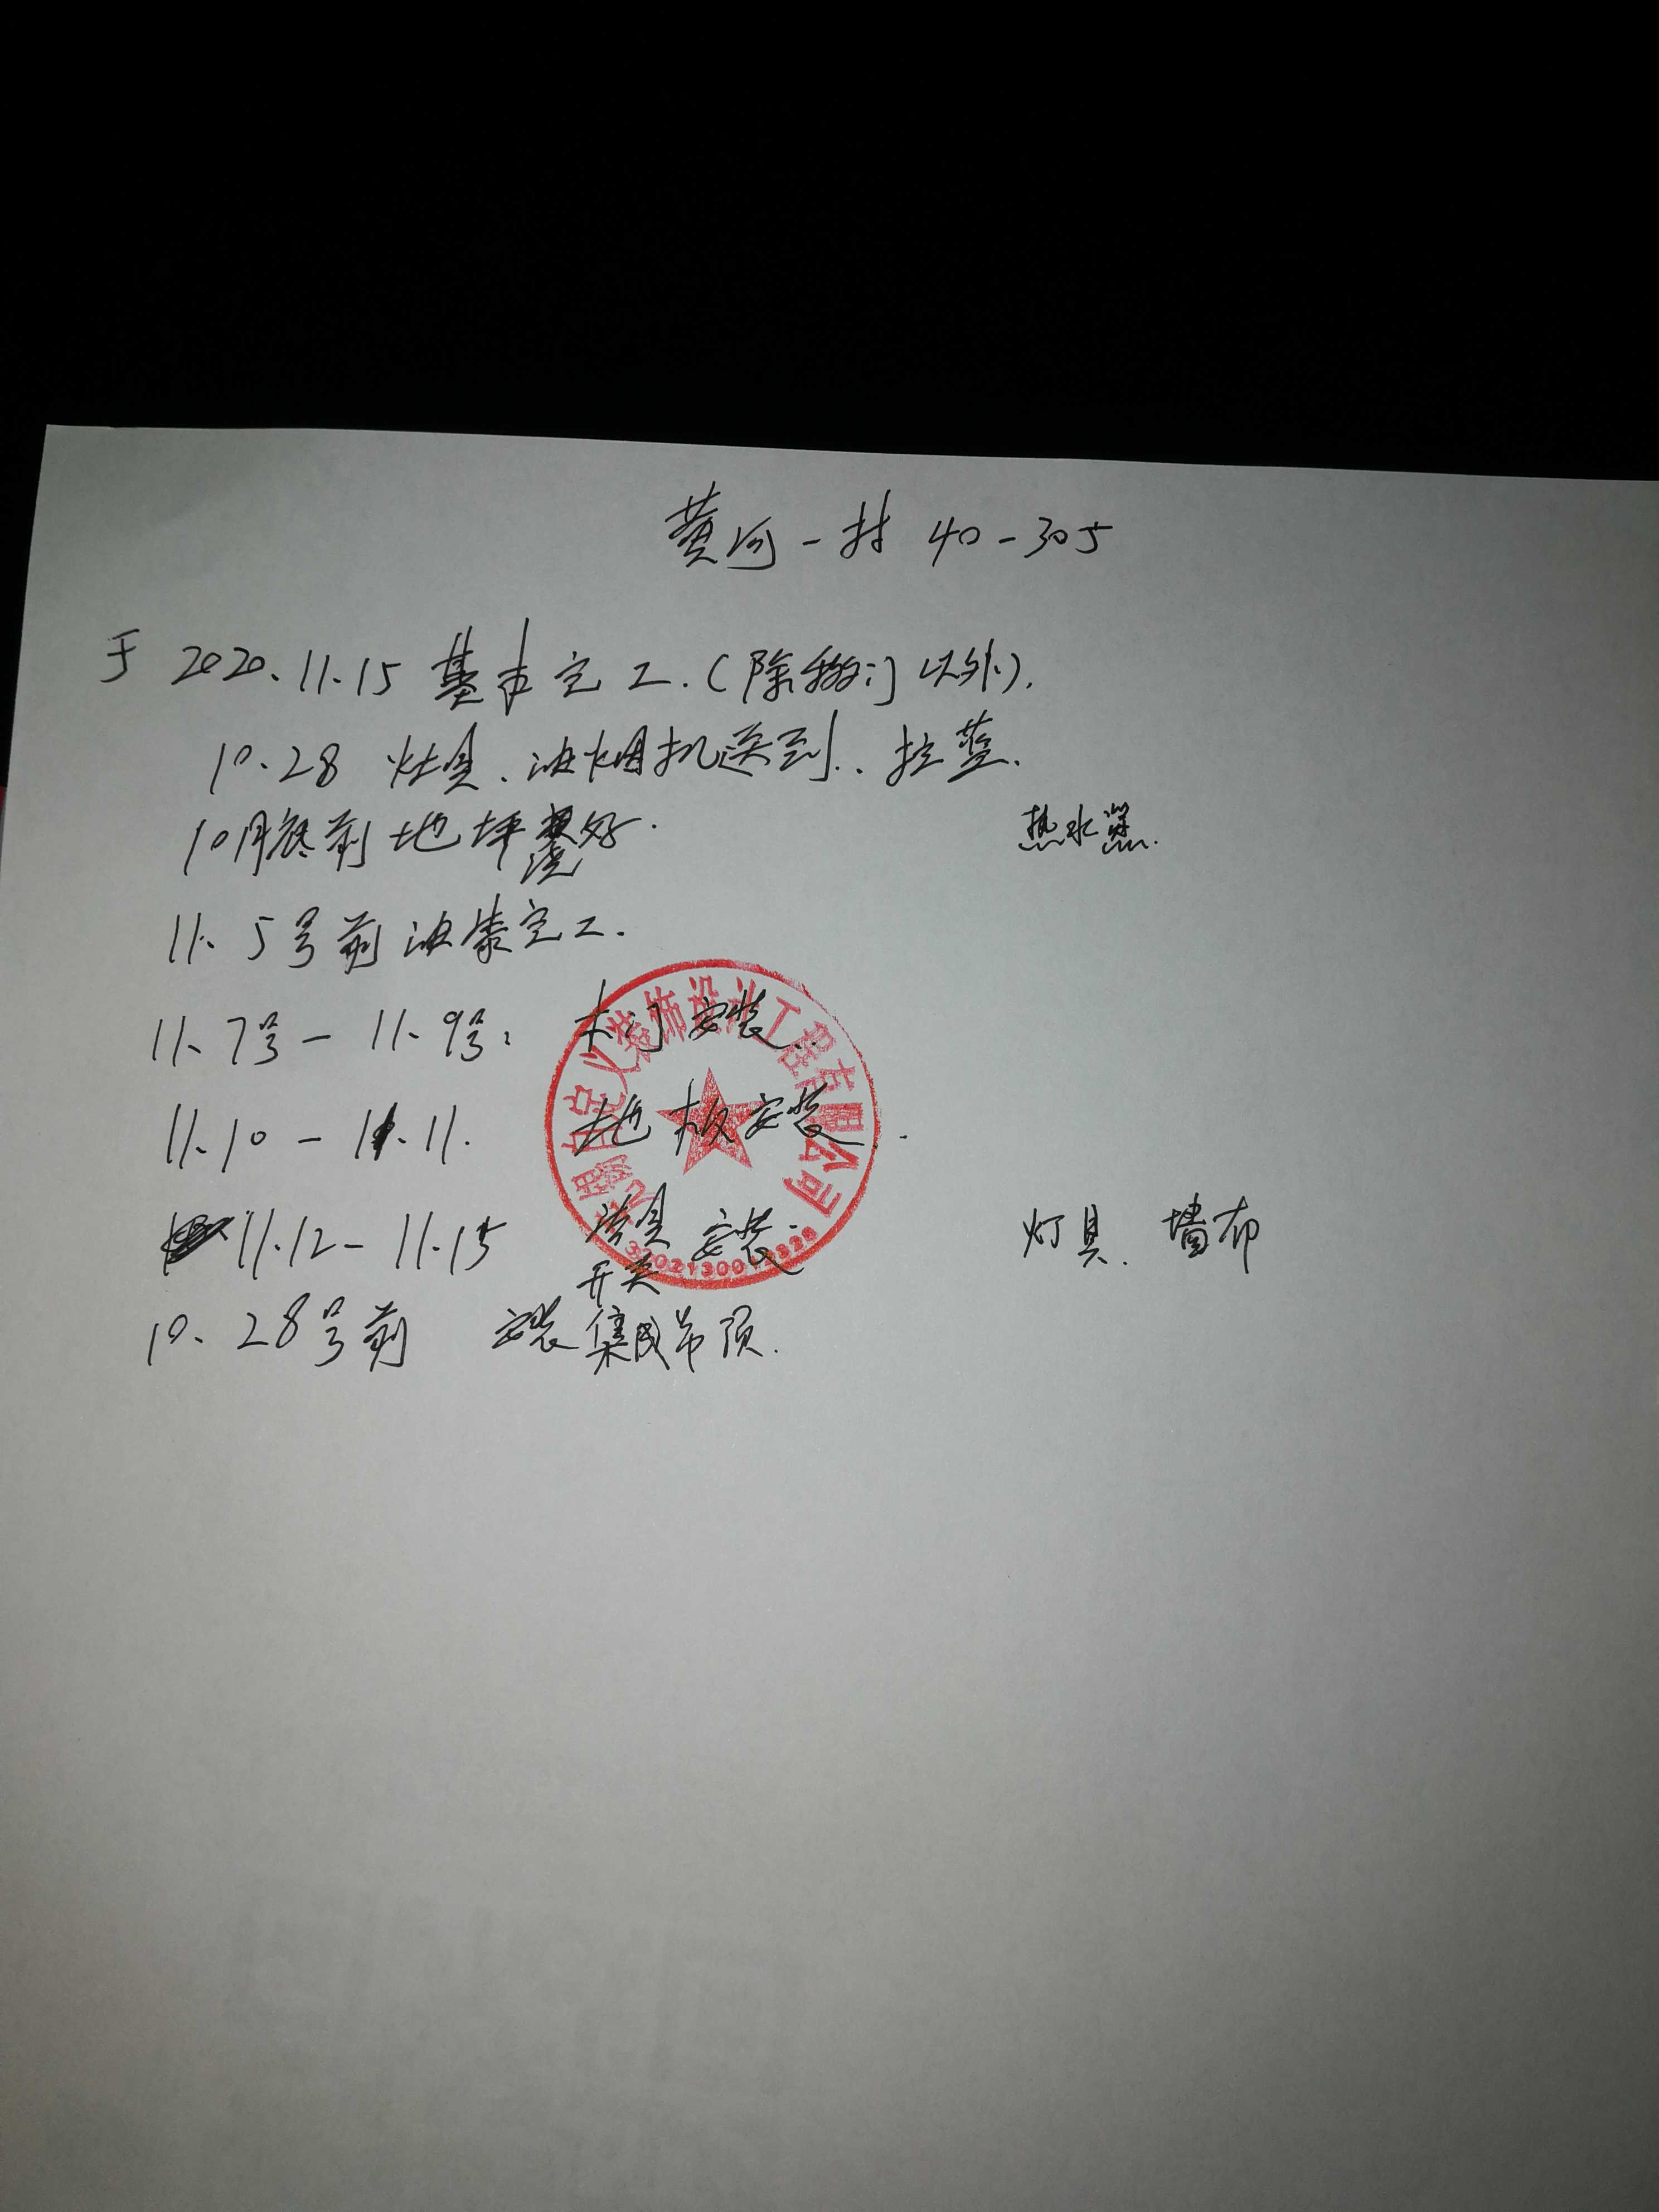 黄河一村 40-305
于 2020.11.15 基本完工.(除移门以外).
10.28 灶具、油烟机送到、拉蓝.
10月底前地坪浇好. 热水器.
11.5号前油漆完工.
11.7号-11.9号: 木门安装.
11.10-11.11. 地板安装.
11.12-11.15 洁具安装. 灯具. 墙布
开关
10.28号前 安装集成吊顶.
装饰设计工程有限公司